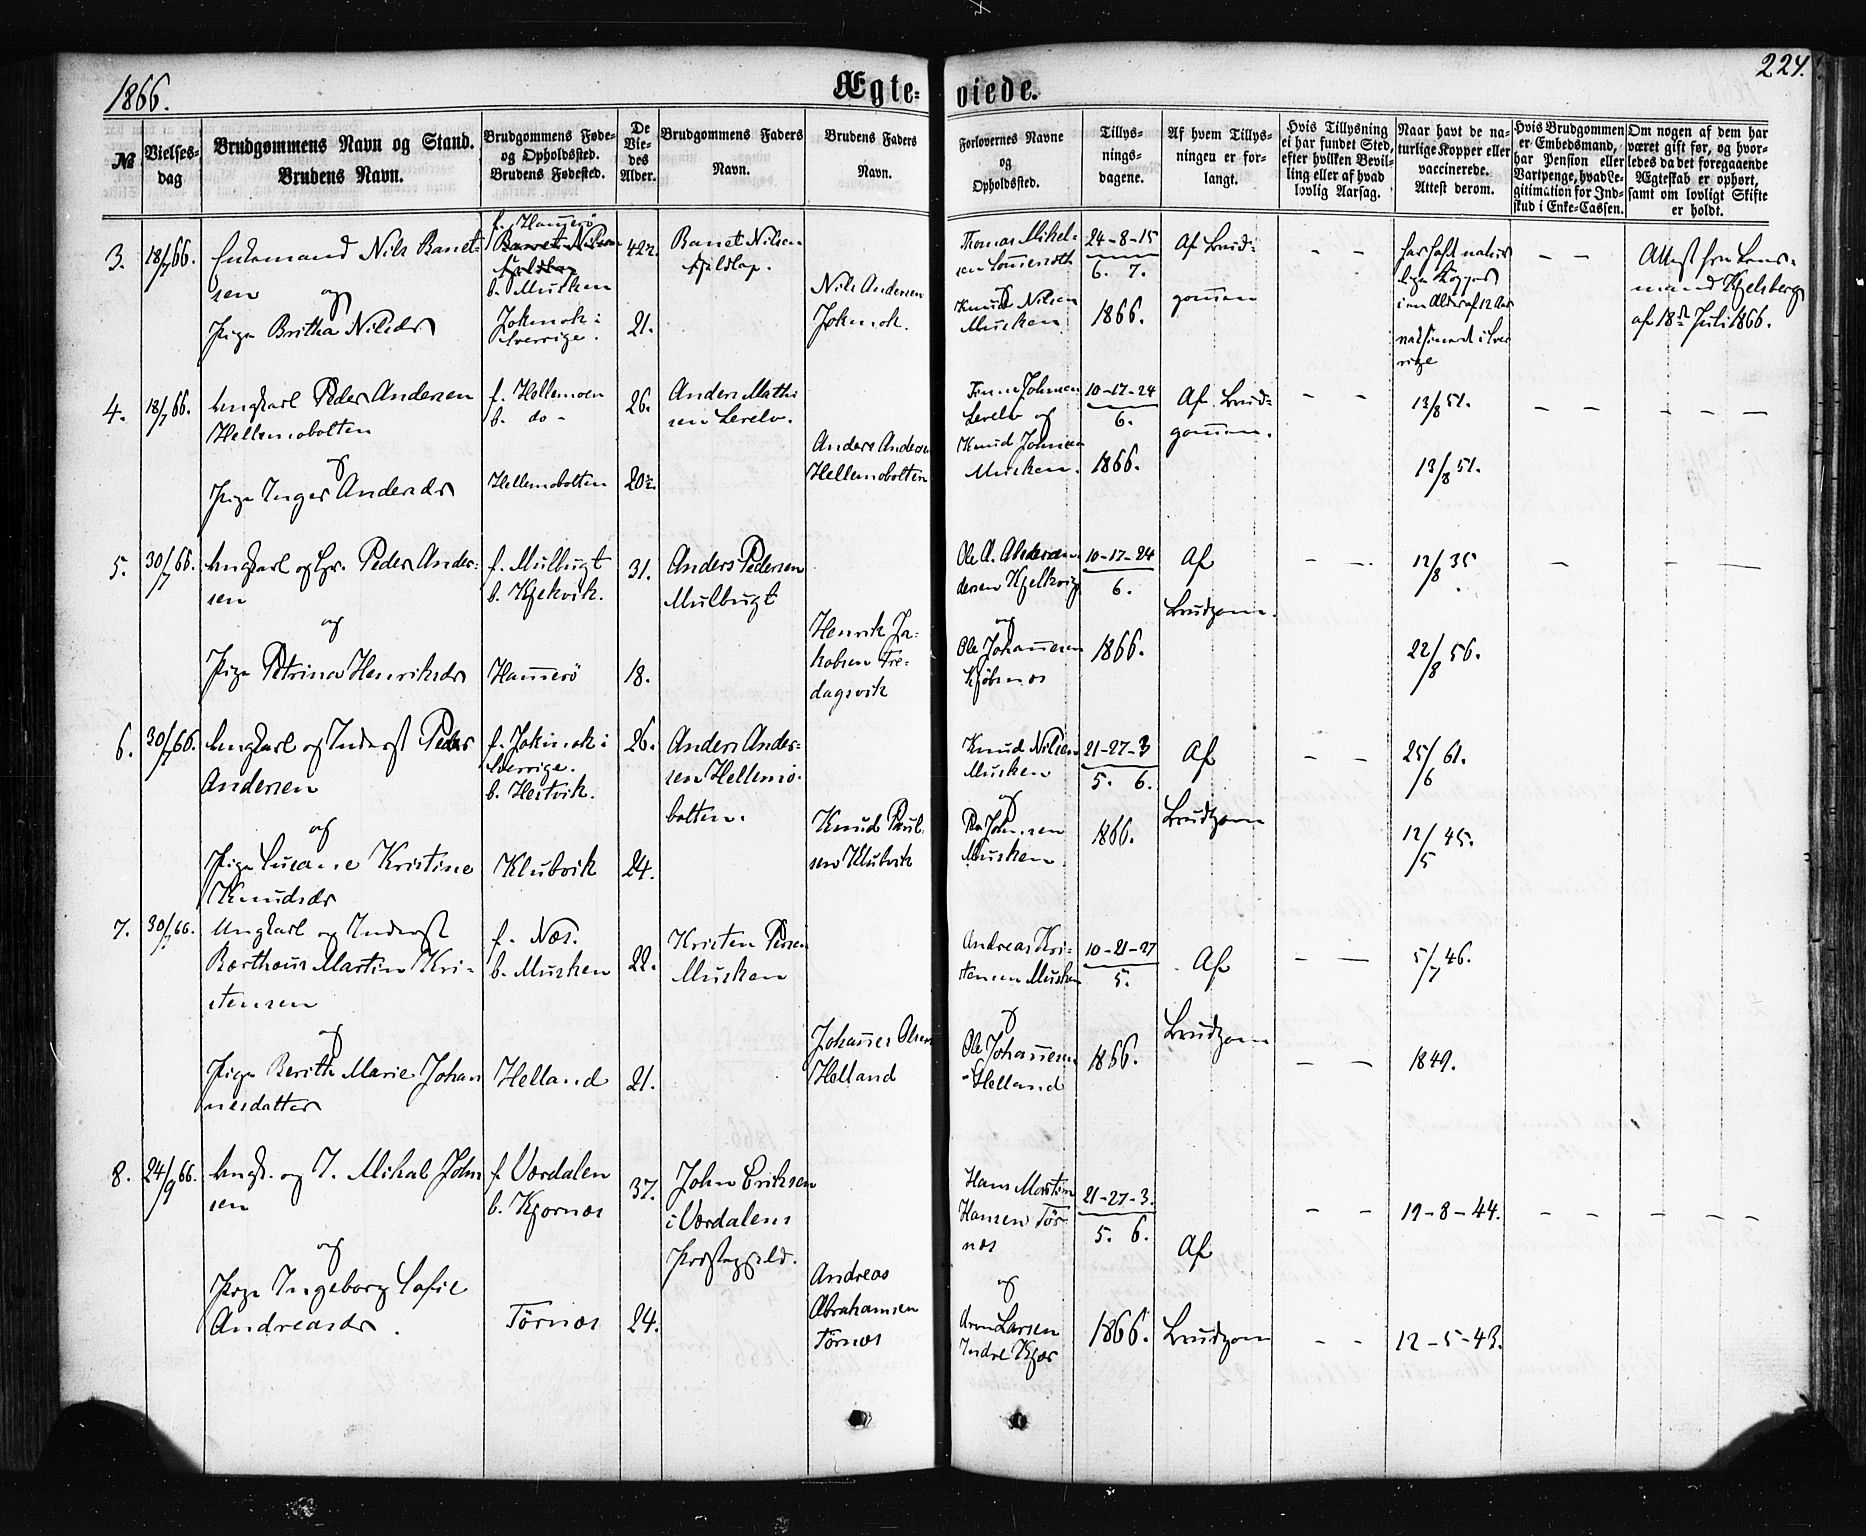 1866.
Ægte=
viede.
224.
№
Vielses-
dag
Brudgommens Navn og Stand.
Brudens Navn.
Brudgommens Føde-
og Opholdssted.
Brudens Fødested.
De
Vie-
des
Alder.
Brudgommens Faders
Navn.
Brudens Faders
Navn.
Forlovernes Navne
og
Opholdssted.
Tillys-
nings-
dagene.
Af hvem Tillys-
ningen er for-
langt.
Hvis Tillysning
ei har fundet Sted,
efter hvilken Bevil-
ling eller af hvad
lovlig Aarsag.
Naar havt de na-
turlige Kopper eller
vaccinerede.
Attest derom.
Hvis Brudgommen
er Embedsmand,
har Pension eller
Vartpenge, hvad Le-
gitimation for Ind-
skud i Enke-Cassen.
Om nogen af dem har
været gift før, og hvor-
ledes da det foregaaende
Ægteskab er ophørt,
samt om lovligt Skifte
er holdt.
3.
18/7 66.
Enkemand Nils Banet-
sen og
Pige Britha Nilsdr
f. Hamerö
Banet Nilsen
Fjeldlap
b. Musken
Jokmok i
Sverrige.
42
21.
Banet Nilsen
Fjeldlap.
Nils Andersen
Jokmok.
Thomas Mikel-
sen
og
Knud Nilsen
Musken
24-8-15
6. 7.
1866.
Af Brud-
gommen
– –
har havt natur
lige Kopper
i en Alder af 12 Aar
– –
Attest fra Lens-
mand Kjelsberg
af 18de Juli 1866.
4.
18/7 66.
Ungkarl Peder Andersen
Hellemobotten
og
Pige Inger Andersdr
f. Hellemoen
b. do –
Hellemobotten
26.
20
Anders Mathi
sen
Anders Andersen
Hellemobotten
Johnsen
og
Knud Johnsen
Musken.
10-17-24
6.
1866.
Af Brud-
gommen.
– –
13/8 51.
13/8 51.
– –
– – –
5.
30/7 66.
Ungkarl og Gr. Peder Ander-
sen
og
Pige Petrina Henriksdr
f. Mulbugt
b. Kjekvik.
Hamerö
31.
18.
Anders Pedersen
Mulbugt
Henrik Ja-
kobsen Tre-
dagsvik
Ole A. An
dersen
og
Ole Johannesen
Kjöbnes
10-17-24
6.
1866.
Af
Brudgom.
– –
12/8 35
22/8 56.
–
– –
6.
30/7 66.
Ungkarl og Inderst Peder
Andersen
og
Pige Susane Kristine
Knudsdr
f. Jokmok i
Sverrige.
b. Hestvik.
Klubvik
26.
24.
Anders Ander-
sen Hellemo-
botten.
Knud Paul-
sen Klubvik
Knud Nilsen
Musken
og
Johnsen
Musken.
21-27-3
5. 6.
1866.
Af
Brudgom
– –
25/6 61.
12/5 45.
7.
30/7 66.
Ungkarl og Inderst
Bærtheus Martin Kri-
stensen
og
Pige Berith Marie Johan
nesdatter
f. Næs.
b. Musken
Helland
22.
21.
Kristen Persen
Musken
Johannes Olsen
Helland
Andreas Kri-
stensen Musken
og
Ole Johannesen
Helland
10-21-27
5.
1866.
Af
Brudgom
– –
– –
5/7 46.
1849.
8.
24/9 66.
Ungk. og I. Mikal John
sen
og
Pige Ingeborg Sofie
Andreasdr.
f. Værdalen
b. Kjornæs
Törnæs
37.
24.
John Eriksen
i Værdalens
Præstegjeld.
Andreas
Abrahamsen
Törnæs
Hans Martin
Hansen Tör
næs
og
Aron Larsen
Indre Kjær
21-27-3.
5. 6.
1866.
Af
Brudgom
– –
– –
19-8-44.
12-5-43.
– –
– – –